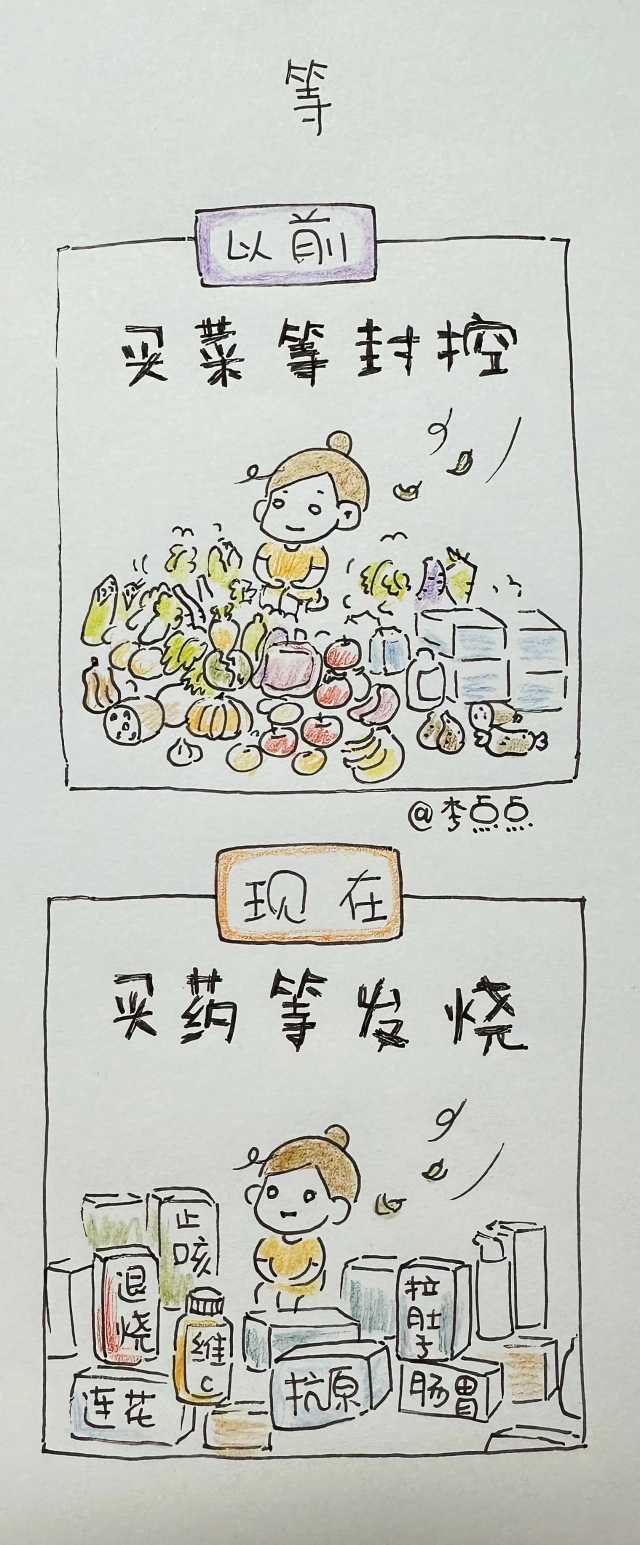 等
以前
买菜等封控
@李点点
现在
买药等发烧
止咳
退烧
维C
拉肚子
连花
抗原
肠胃